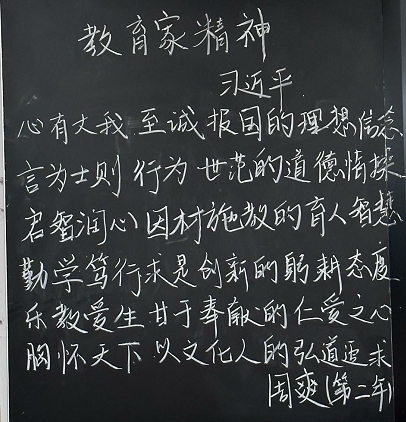 教育家精神
习近平
心有大我 至诚报国的理想信念
言为士则 行为世范的道德情操
启智润心 因材施教的育人智慧
勤学笃行求是创新的躬耕态度
乐教爱生甘于奉献的仁爱之心
胸怀天下以文化人的弘道追求
周爽(第二年)